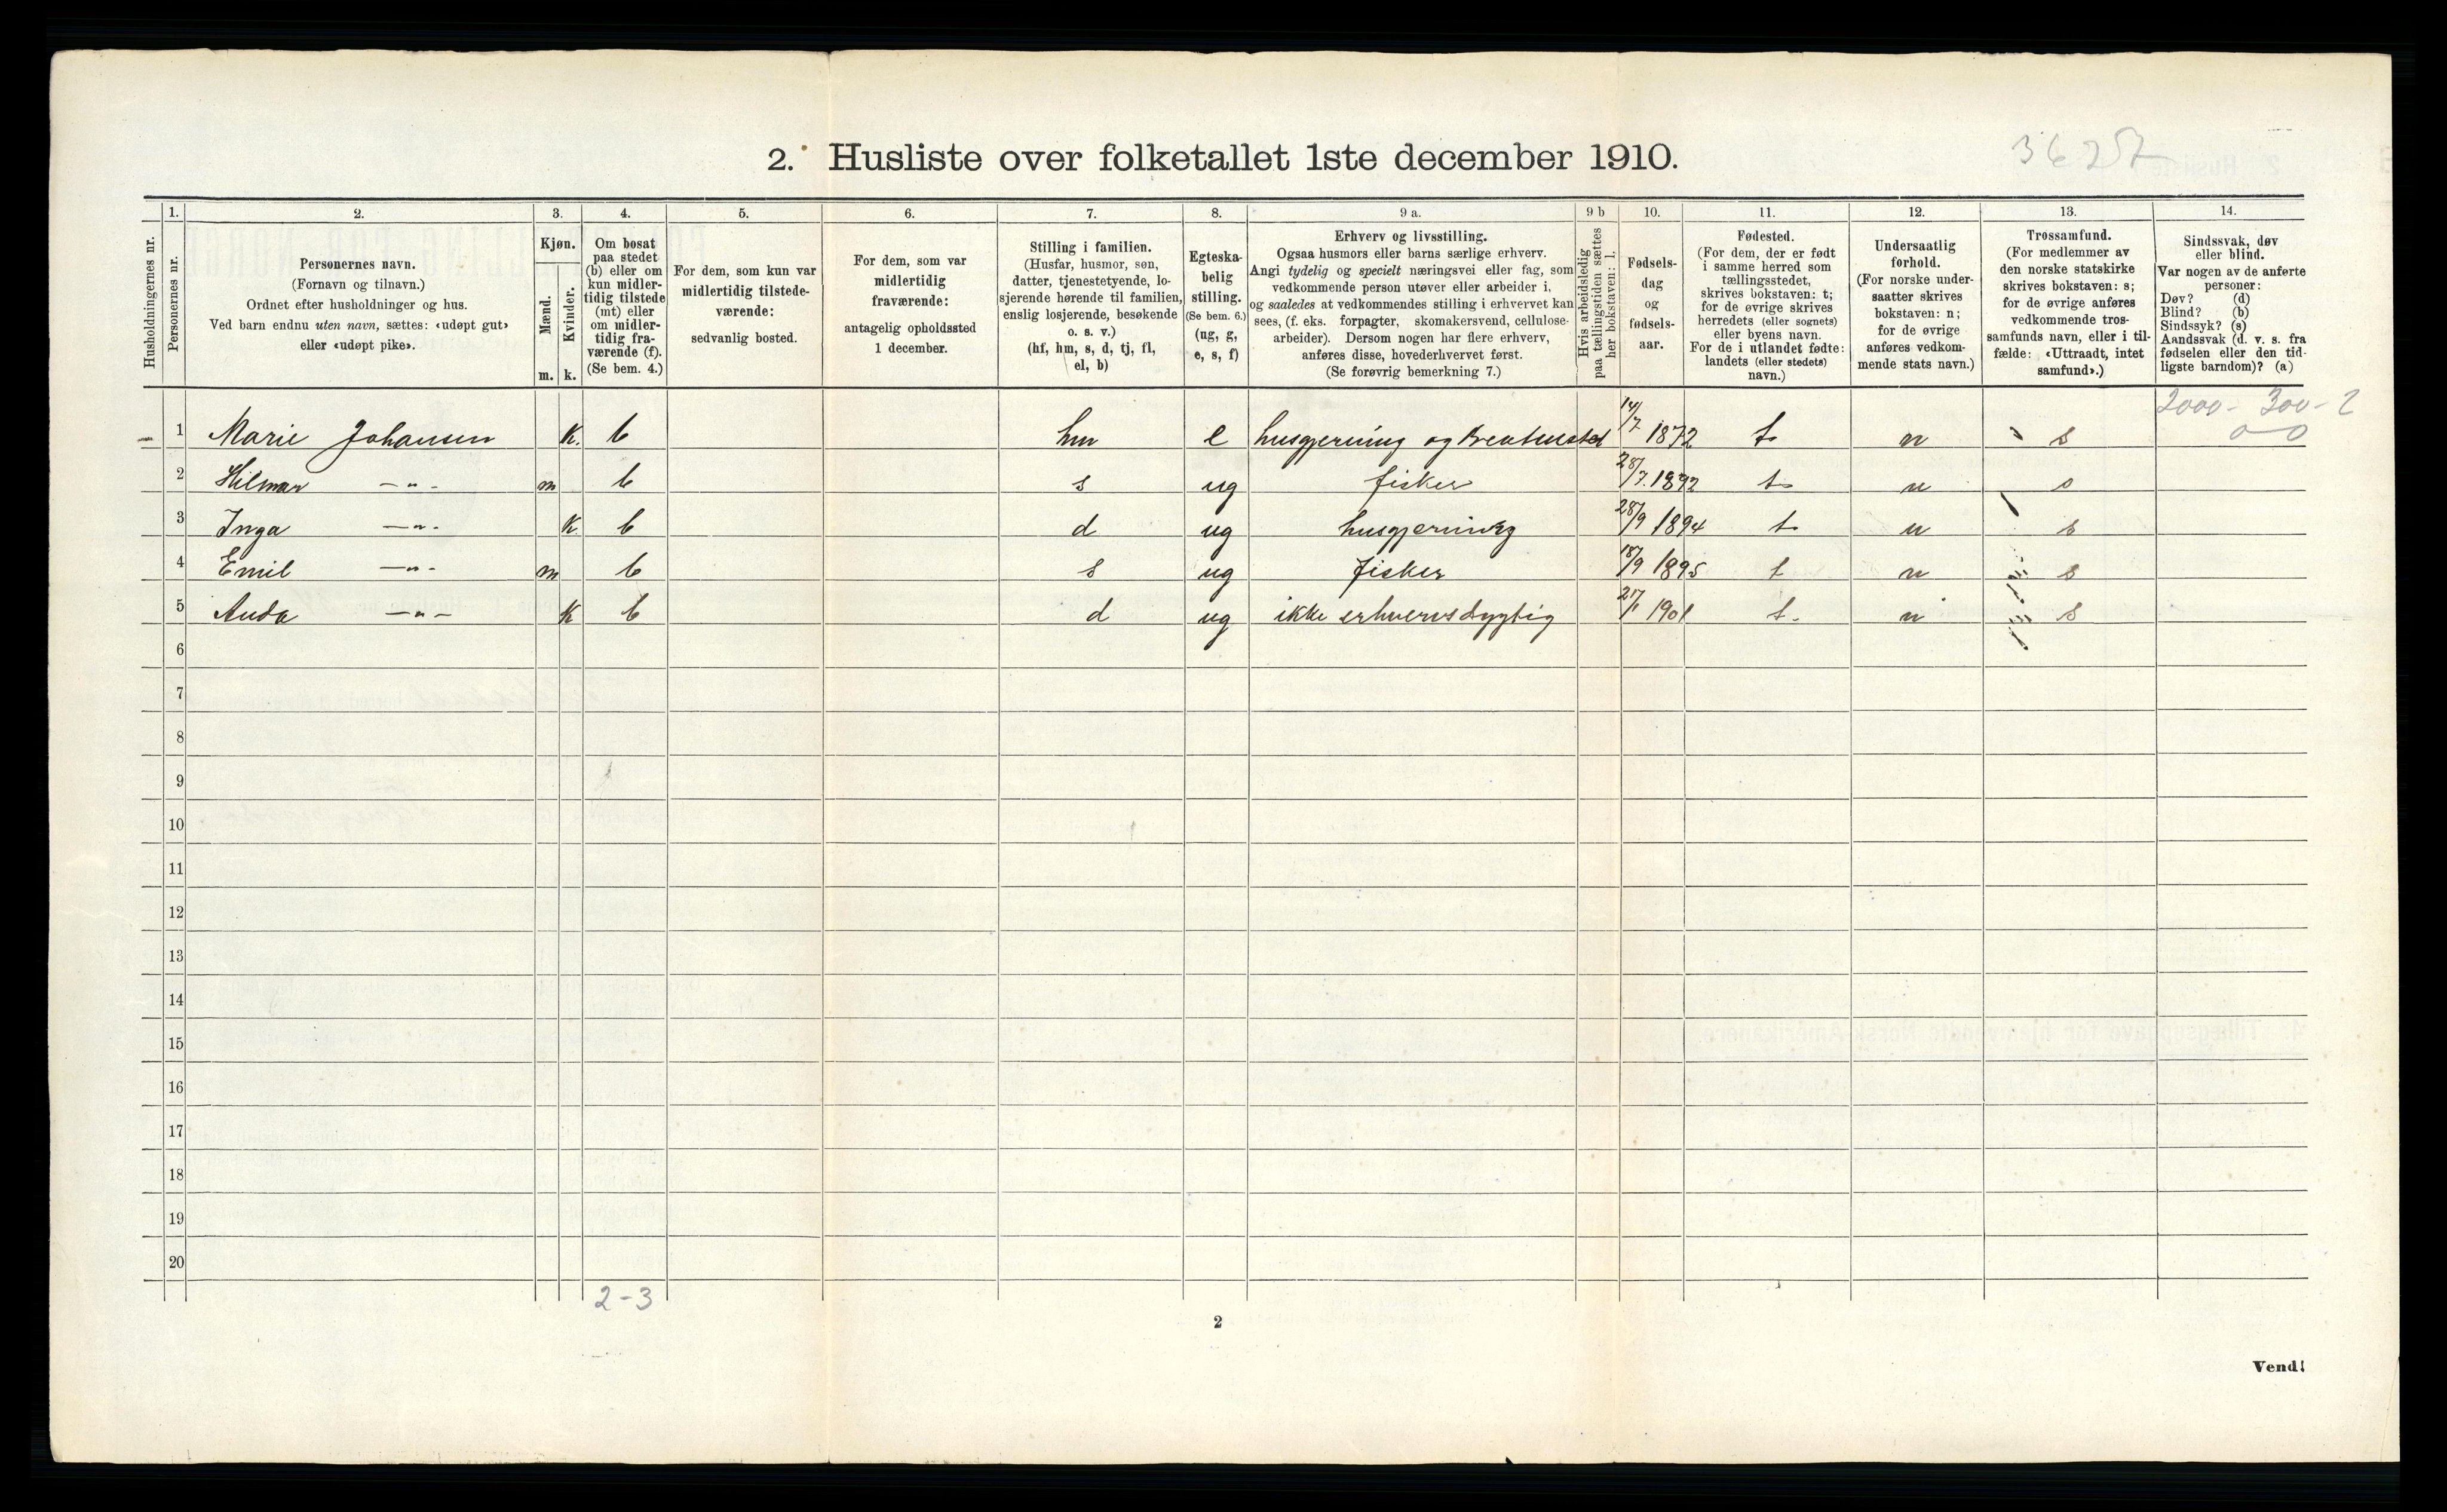 2. Husliste over folketallet 1ste december 1910.
3625
Husholdningernes nr.
1.
Personernes nr.
2.
Personernes navn.
(Fornavn og tilnavn.)
Ordnet efter husholdninger og hus.
Ved barn endnu uten navn, sættes: «udøpt gut»
eller «udøpt pike».
3.
Kjøn.
Mænd.
Kvinder.
m. k.
4.
Om bosat
paa stedet
(b) eller om
kun midler-
tidig tilstede
(mt) eller
om midler-
tidig fra-
værende (f).
(Se bem. 4.)
5.
For dem, som kun var
midlertidig tilstede-
værende:
sedvanlig bosted.
6.
For dem, som var
midlertidig
fraværende:
antagelig opholdssted
1 december.
7.
Stilling i familien.
(Husfar, husmor, søn,
datter, tjenestetyende, lo-
sjerende hørende til familien,
enslig losjerende, besøkende
o. s. v.)
(hf, hm, s, d, tj, fl,
el, b)
8.
Egteska-
belig
stilling.
(Se bem. 6.)
(ug, g,
e, s, f)
9 a.
Erhverv og livsstilling.
Ogsaa husmors eller barns særlige erhverv.
Angi tydelig og specielt næringsvei eller fag, som
vedkommende person utøver eller arbeider i,
og saaledes at vedkommendes stilling i erhvervet kan
sees, (f. eks. forpagter, skomakersvend, cellulose-
arbeider). Dersom nogen har flere erhverv,
anføres disse, hovederhvervet først.
(Se forøvrig bemerkning 7.)
9 b
Hvis arbeidsledig
paa tællingstiden sættes
her bokstaven: l.
10.
Fødsels-
dag
og
fødsels-
aar.
11.
Fødested.
(For dem, der er født
i samme herred som
tællingsstedet,
skrives bokstaven: t;
for de øvrige skrives
herredets (eller sognets)
eller byens navn.
For de i utlandet fødte:
landets (eller stedets)
navn.)
12.
Undersaatlig
forhold.
(For norske under-
saatter skrives
bokstaven: n;
for de øvrige
anføres vedkom-
mende stats navn.)
13.
Trossamfund.
(For medlemmer av
den norske statskirke
skrives bokstaven: s;
for de øvrige anføres
vedkommende tros-
samfunds navn, eller i til-
fælde: «Uttraadt, intet
samfund».)
14.
Sindssvak, døv
eller blind.
Var nogen av de anførte
personer:
Døv? (d)
Blind? (b)
Sindssyk? (s)
Aandssvak (d. v. s. fra
fødselen eller den tid-
ligste barndom)? (a)
2000 - 300 - 2
0 0
1 Marie Johansen K. b hm e husgjerning og 14/7 1872 t n s
2 Hilmar —"— m b s ug fisker 28/7 1892 t n s
3 Inga —"— K b d ug husgjerning 28/9 1894 t n s
4 Emil —"— m b s ug fisker 18/9 1895 t n s
5 Anda —"— K b d ug ikke erhvervsdygtig 1901 t n s
6
7
8
9
10
11
12
13
14
15
16
17
18
19
20
2-3
2
Vend!